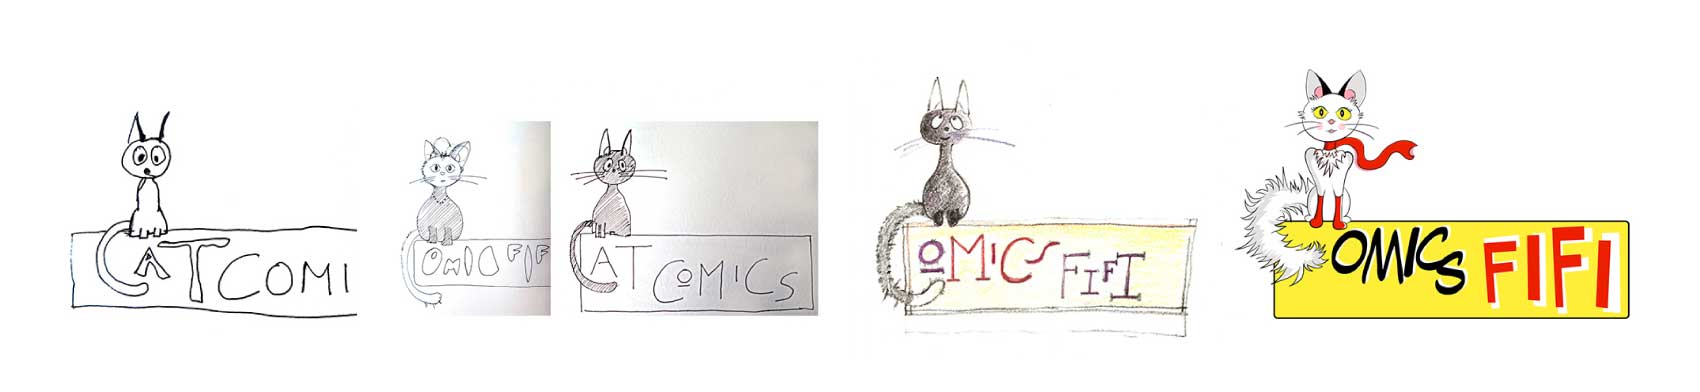 CAT COMI
COMIC FIF
CAT COMICS
COMICS FIFI
COMICS FIFI